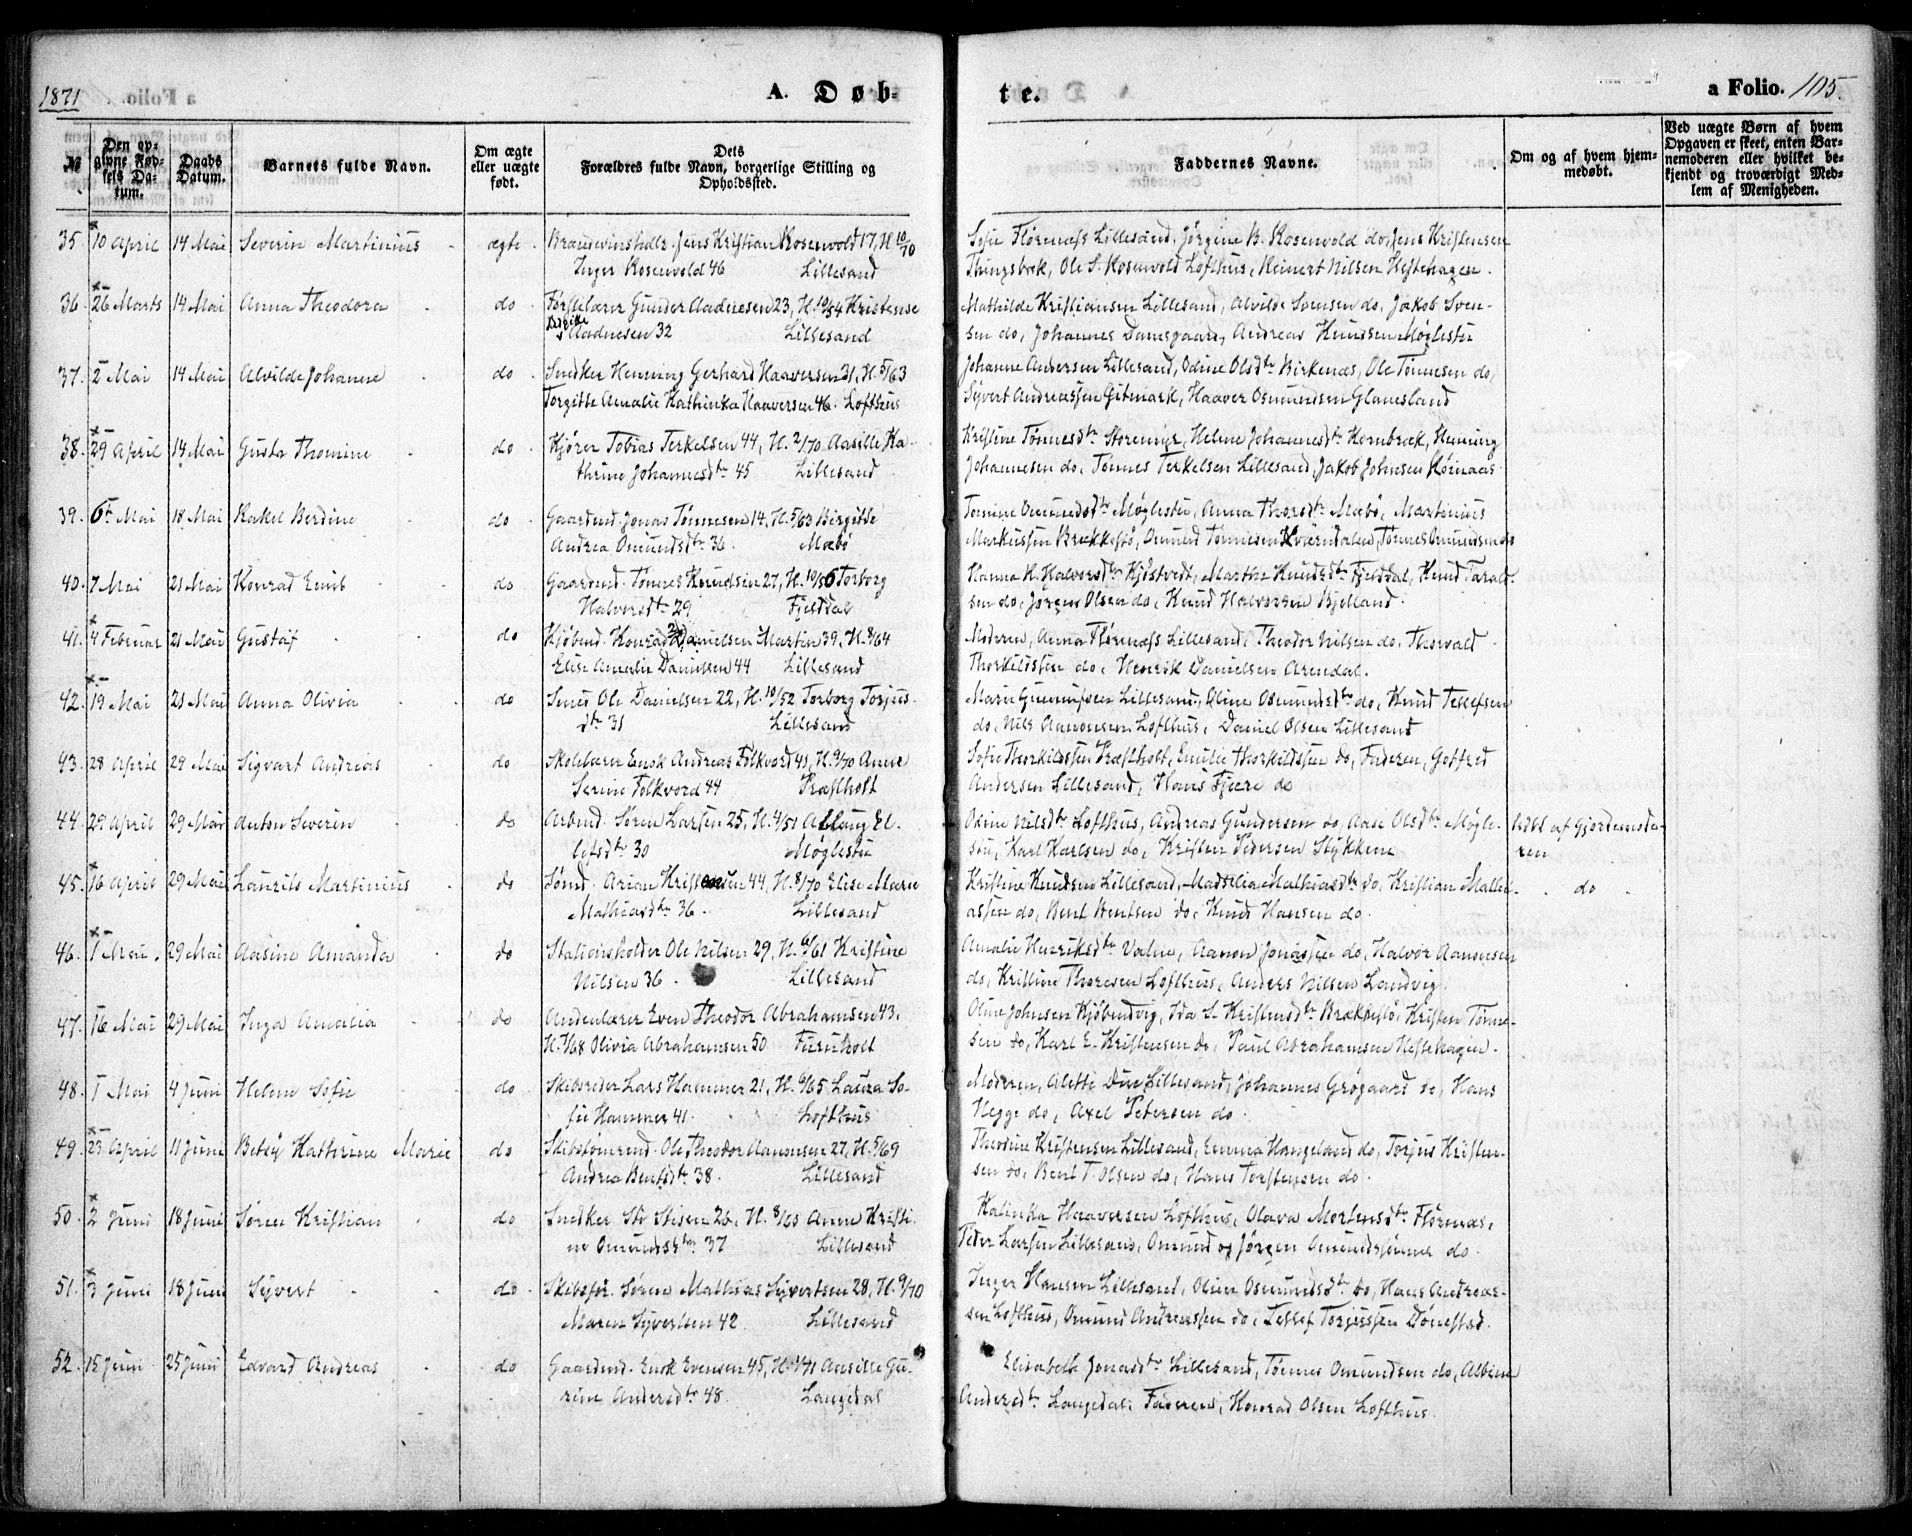 1871
A. Døb-
te.
a Folio. 105.
№
Den op-
givne Fød-
sels Da-
tum.
Daabs
Datum.
Barnets fulde Navn.
Om ægte
eller uægte
født.
Dets
Forældres fulde Navn, borgerlige Stilling og
Opholdssted.
Faddernes Navne.
Om og af hvem hjem-
medøbt.
Ved uægte Børn af hvem
Opgaven er skeet, enten Bar-
nemoderen eller hvilket be-
kjendt og troværdigt Med-
lem af Menigheden.
35. 10 April 14 Mai Severin Martinius ægte Brændevinshdlr. Jens Kristian Rosenvold 17, H. 10/70 Sofie Flørenæss Lillesand, Jørgine B. Rosenvold do, Jens Kristensen
Inger Rosenvold 46 Lillesand Thingsbek, Ole S. Rosenvold Lofthus, Reinert Nilsen Heftehagen.
36. 26 Marts 14 Mai Anna Theodora do Gunder Aadnesen 23, H. 10/54 Kristense Mathilde Kristiansen Lillesand, Alvilde Svensen do, Jakob Sven-
Birgitte Aadnesen 32 Lillesand sen do, Johannes Damsgaard, Andreas Knudsen Møglestu
37. 2 Mai 14 Mai Alvilde Johanne do Snedker Henning Gerhard Haaversen 31, H. 5/63 Johanne Andersen Lillesand, Odine Olsdtr Birkenæs, Ole Tønnesen do,
Torgitte Amalie Kathinka Haaversen 46. Lofthus Syvert Andreassen Gitmark, Haaver Osmundsen Glamsland
38. 29 April 14 Mai Gusta Thomine do Kjører Tobias Terkelsen 44, H. 2/70 Aasille Ka- Kristine Tønnesdtr Storemyr, Helene Johannesdtr Kornbrek, Henning
thrine Johannesdtr 45 Lillesand Johannesen do, Tønnes Terkelsen Lillesand, Jakob Johnsen
39. 6 Mai 18 Mai Rakel Berdine do Gaardmd. Jonas Tønnesen 14, H. 5/63 Birgitte Tomine Osmundsdtr Møglestu, Anna Thorsdtr Mæbø, Martinius
Andrea Osmundsdtr 36. Mæbø Markussen Brekkestø, Osmund Tønnesen Kverndalen, Tønnes Osmundsen do
40. 7 Mai 21 Mai Konrad Emil do Gaardmd. Tønnes Knudsen 27, H. 10/56 Torborg Hanna K. Halvorsdtr Kjøstvedt, Marthe Knudsdtr Fjelddal, Knud Taralt-
Halvorsdtr 29 Fjelddal sen do, Jørgen Olsen do, Knud Halvorsen Bjelland.
41. 4 Februar 21 Mai Gustaf do Kjøbmd. Konrad Danielsen Martin 39, H. 8/64 Moderen, Anna Flørenæss Lillesand, Theodor Nilsen do, Thorvald
Elise Amalie Danielsen 44 Lillesand Thorkildsen do, Henrik Danielsen Arendal.
42. 19 Mai 21 Mai Anna Olivia do Smed Ole Danielsen 22, H. 10/52 Torborg Torjus- Marie Gunnufsen Lillesand, Oline Osmundsdtr do, Knud Tellefsen
dtr 31 Lillesand do, Nils Aanonsen Lofthus, Daniel Olsen Lillesand
43. 28 April 29 Mai Sigvart Andreas do Skolelærer Enok Andreas Folkvord 41, H. 9/70 Anne Sofie Thorkildsen Præstholt, Emilie Thorkildsen do, Faderen, Gotfred
Serine Folkvord 44 Præstholt Andersen Lillesand, Hans Fjære do
44. 29 April 29 Mai Anton Severin do Arbmd. Søren Larsen 25, H. 4/51 Aslaug El- Odine Nilsdtr Lofthus, Andreas Gundersen do, Aase Olsdtr Møgle- hdbt af Gjordemode-
lefsdtr 30 Møglestu stu, Karl Karlsen do, Kristen Pedersen Stykkene ren
45. 16 April 29 Mai Laurits Martinius do Sømd. Arian Kristensen 44, H. 8/70 Elise Maren Kristine Knudsen Lillesand, Mathiasdtr do, Kristian Mathi- do
Mathiasdtr 36. Lillesand assen do, Bent Bentsen do, Knud Hansen do.
46. 1 Mai. 29 Mai Aasine Amanda do Stationsholder Ole Nilsen 29, H. 6/61 Kristine Amalie Henriksdtr Valne, Aanon Jonassen do, Halvor Aanonsen
Nilsen 36. Lillesand do, Kristine Thoresen Lofthus, Anders Nilsen Landvig.
47. 16 Mai 29 Mai Inga Amalia do Even Theodor Abrahamsen 43, Oline Johnsen Kjøbendvig, Ida S. Kristensdtr Brækkestø, Kristen Tønne-
H. 1/68 Olivia Abrahamsen 50 Furuholt sen do, Karl E. Kristensen do, Paul Abrahamsen Heftehagen.
48. 1 Mai 4 Juni Helene Sofie do Skibsreder Lars Hammer 21, H. 6/65 Laura So- Moderen, Alette Due Lillesand, Johannes Grøgaard do, Hans
fie Hammer 41. Lofthus Hegge do, Axel Petersen do.
49. 23 April 11 Juni Betsy Kathrine Marie do Skibstømrmd. Ole Theodor Aanonsen 27, H. 5/69 Theodine Kristensen Lillesand, Emma Hangeland do, Torjus Kristen-
Andrea Bentsdtr 38. Lillesand sen do, Bent T. Olsen do, Hans Torstensen do.
50. 2 Juni 18 Juni Søren Kristian do Snedker Siv Stisen 26, H. 8/65 Anne Kristi- Katinka Haaversen Lofthus, Olava Mortensdtr Flørenæs,
ne Osmundsdtr 37 Lillesand Peder Larsen Lillesand, Osmund og Jørgen Osmundsønner do.
51. 3 Juni 18 Juni Syvert do Skibsfør. Søren Mathias Syvertsen 28, H. 9/70 Inger Hansen Lillesand, Oline Osmundsdtr do, Hans Andreas-
Maren Syvertsen 42. Lillesand sen Lofthus, Osmund Andreassen do, Tellef Torjussen Dønestad.
52. 15 Juni 25 Juni Edvard Andreas do Gaardmd. Enok Evensen 45, H. 1/71 Aasille Gu- Elisabeth Jonasdtr Lillesand, Tønnes Osmundsen do, Albine
rine Andersdtr 48. Langedal Andersdtr Langedal, Faderen, Konrad Olsen Lofthus.